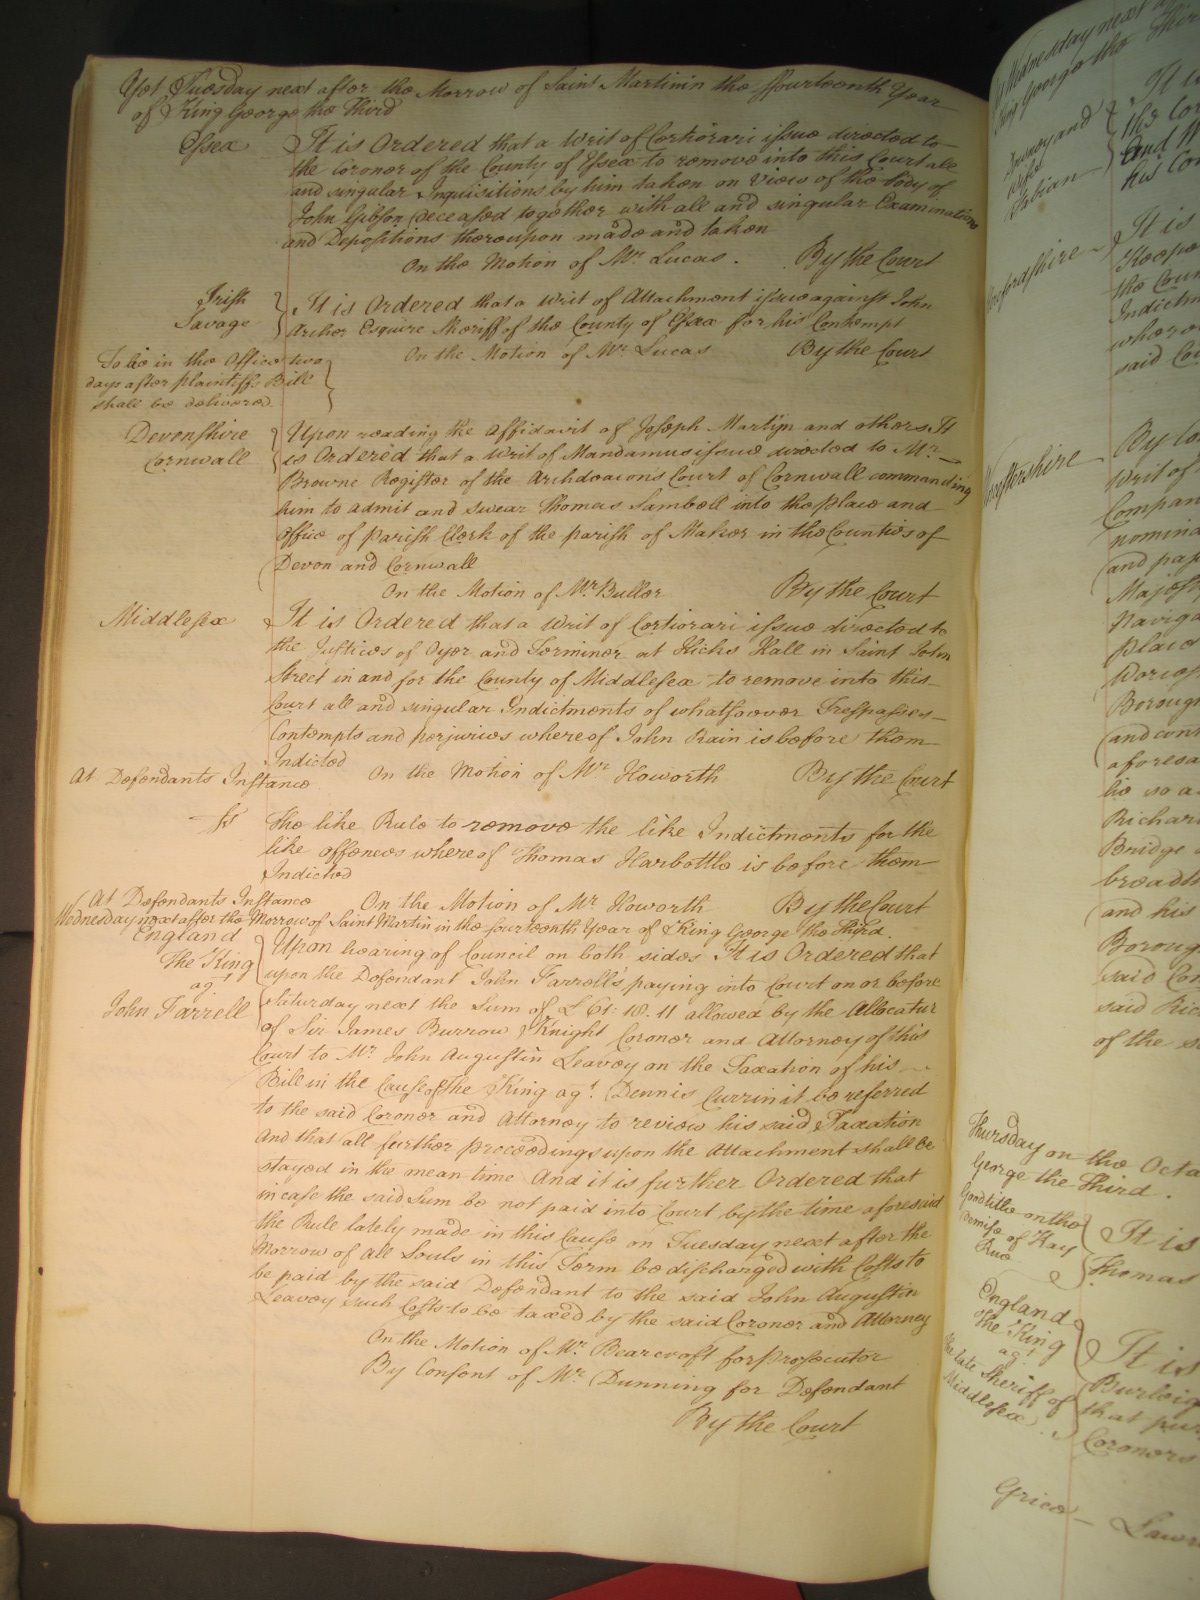 Yet Tuesday next after the Morrow of Saint Martin in the ffourteenth Year
of King George the Third
Essex It is Ordered that a Writ of Certiorari issue directed to
the Coroner of the County of Essex to remove into this Court all
and singular Inquisitions by him taken on View of the body of
John Gibson deceased together with all and singular Examinations
and Depositions thereupon made and taken
On the Motion of Mr. Lucas. By the Court
Irish
Savage
It is Ordered that a Writ of Attachment issue against John
Archer Esquire Sheriff of the County of Essex for his Contempt
On the Motion of Mr. Lucas By the Court
To lie in the Office two
days after plaintiffs Bill
shall be delivered
Devonshire
Cornwall
Upon reading the Affidavit of Joseph Martyn and others It
is Ordered that a Writ of Mandamus issue directed to Mr.
Browne Register of the Archdeacon's Court of Cornwall commanding
him to admit and swear Thomas Sambell into the place and
Office of parish Clerk of the parish of Maker in the Counties of
Devon and Cornwall
On the Motion of Mr. Buller By the Court
Middlesex It is Ordered that a Writ of Certiorari issue directed to
the Justices of Oyer and Terminer at Hicks Hall in Saint John
Street in and for the County of Middlesex to remove into this
Court all and singular Indictments of whatsoever Trespasses
Contempts and perjuries whereof John Rain is before them
Indicted
At Defendants Instance On the Motion of Mr. Howorth By the Court
ss The like Rule to remove the like Indictments for the
like offences whereof Thomas Harbottle is before them
Indicted
At Defendants Instance On the Motion of Mr. Howorth By the Court
Wednesday next after the Morrow of Saint Martin in the fourteenth Year of King George the Third.
England
The King
agt
John Farrell
Upon hearing of Council on both sides It is Ordered that
upon the Defendant John Farrell's paying into Court on or before
Saturday next the Sum of £ 61: 18. 11 allowed by the Allocatur
of Sir James Burrow Knight Coroner and Attorney of this
Court to Mr. John Augustin Leavey on the Taxation of his
Bill in the Cause of The King agt. Dennis Currin it be referred
to the said Coroner and Attorney to review his said Taxation
And that all further proceedings upon the Attachment shall be
stayed in the mean time And it is further Ordered that
in case the said Sum be not paid into Court by the time aforesaid
the Rule lately made in this Cause on Tuesday next after the
Morrow of all Souls in this Term be discharged with Costs to
be paid by the said Defendant to the said John Augustin
Leavey such Costs to be taxed by the said Coroner and Attorney
On the Motion of Mr. Bearcroft for prosecutor
By Consent of Mr. Dunning for Defendant
By the Court
Wednesday next
King George the Thir
and
wife
It i
the Cor
And
his Co
It is
Keepe
the Coun
Indictm
where
said Cou
By Co
Writ of
Compan
nomina
and pap
Majest
Naviga
place
Boroug
and cont
aforesa
lie so a
Richar
Bridge
breadt
and his
Boroug
said Con
said Ric
of the s
Thursday on the Octa
George the Third.
Goodtitle on the
demise of Hay
It is
Thomas
England
The King
agt
The late Sheriff of
Middlesex
It is
Burleig
that pu
Coroners
Grice Law